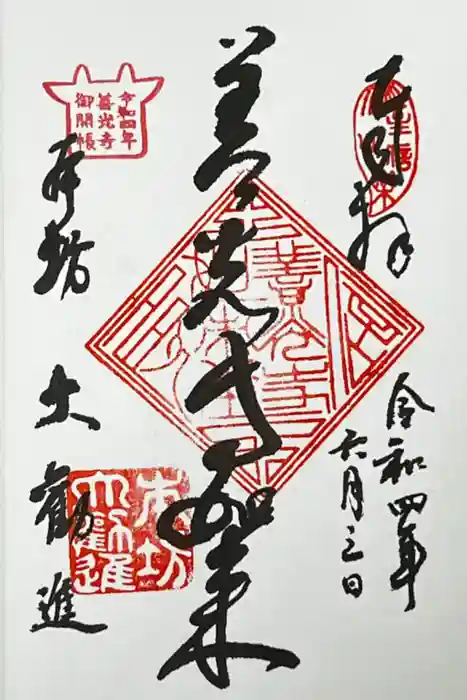 奉拝
令和四年
六月三日
善光寺如来
令和四年
善光寺
御開帳
本坊
大勧進
本坊
大勧進